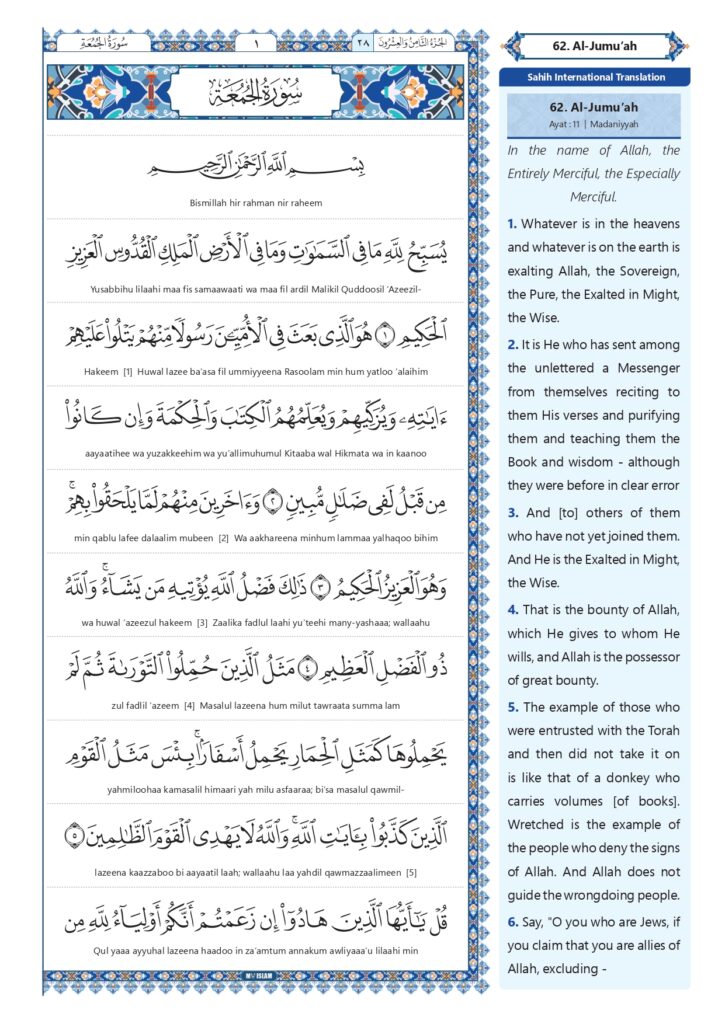 سُورَةُ الجُمُعَةِ
١
٢٨
الجُزْءُ الثَّامِنُ وَالعِشْرُونَ
سُورَةُ الجُمُعَةِ
بِسْمِ ٱللَّهِ ٱلرَّحْمَٰنِ ٱلرَّحِيمِ
Bismillah hir rahman nir raheem
يُسَبِّحُ لِلَّهِ مَا فِي ٱلسَّمَٰوَٰتِ وَمَا فِي ٱلْأَرْضِ ٱلْمَلِكِ ٱلْقُدُّوسِ ٱلْعَزِيزِ
Yusabbihu lilaahi maa fis samaawaati wa maa fil ardil Malikil Quddoosil 'Azeezil-
ٱلْحَكِيمِ ١ هُوَ ٱلَّذِي بَعَثَ فِي ٱلْأُمِّيِّـۧنَ رَسُولًا مِّنْهُمْ يَتْلُوا۟ عَلَيْهِمْ
Hakeem [1] Huwal lazee ba'asa fil ummiyyeena Rasoolam min hum yatloo 'alaihim
ءَايَٰتِهِۦ وَيُزَكِّيهِمْ وَيُعَلِّمُهُمُ ٱلْكِتَٰبَ وَٱلْحِكْمَةَ وَإِن كَانُوا۟
aayaatihee wa yuzakkeehim wa yu'allimuhumul Kitaaba wal Hikmata wa in kaanoo
مِن قَبْلُ لَفِي ضَلَٰلٍ مُّبِينٍ ٢ وَءَاخَرِينَ مِنْهُمْ لَمَّا يَلْحَقُوا۟ بِهِمْ ۚ
min qablu lafee dalaalim mubeen [2] Wa aakhareena minhum lammaa yalhaqoo bihim
وَهُوَ ٱلْعَزِيزُ ٱلْحَكِيمُ ٣ ذَٰلِكَ فَضْلُ ٱللَّهِ يُؤْتِيهِ مَن يَشَآءُ ۚ وَٱللَّهُ
wa huwal 'azeezul hakeem [3] Zaalika fadlul laahi yu'teehi many-yashaaa; wallaahu
ذُو ٱلْفَضْلِ ٱلْعَظِيمِ ٤ مَثَلُ ٱلَّذِينَ حُمِّلُوا۟ ٱلتَّوْرَىٰةَ ثُمَّ لَمْ
zul fadlil 'azeem [4] Masalul lazeena hum milut tawraata summa lam
يَحْمِلُوهَا كَمَثَلِ ٱلْحِمَارِ يَحْمِلُ أَسْفَارًۢا ۚ بِئْسَ مَثَلُ ٱلْقَوْمِ
yahmiloohaa kamasalil himaari yah milu asfaaraa; bi'sa masalul qawmil-
ٱلَّذِينَ كَذَّبُوا۟ بِـَٔايَٰتِ ٱللَّهِ ۚ وَٱللَّهُ لَا يَهْدِي ٱلْقَوْمَ ٱلظَّٰلِمِينَ ٥
lazeena kaazzaboo bi aayaatil laah; wallaahu laa yahdil qawmazzaalimeen [5]
قُلْ يَٰٓأَيُّهَا ٱلَّذِينَ هَادُوٓا۟ إِن زَعَمْتُمْ أَنَّكُمْ أَوْلِيَآءُ لِلَّهِ مِن
Qul yaaa ayyuhal lazeena haadoo in za'amtum annakum awliyaaa'u lilaahi min
MY ISLAM
62. Al-Jumu'ah
Sahih International Translation
62. Al-Jumu'ah
Ayat : 11 | Madaniyyah
In the name of Allah, the
Entirely Merciful, the Especially
Merciful.
1. Whatever is in the heavens
and whatever is on the earth is
exalting Allah, the Sovereign,
the Pure, the Exalted in Might,
the Wise.
2. It is He who has sent among
the unlettered a Messenger
from themselves reciting to
them His verses and purifying
them and teaching them the
Book and wisdom - although
they were before in clear error
3. And [to] others of them
who have not yet joined them.
And He is the Exalted in Might,
the Wise.
4. That is the bounty of Allah,
which He gives to whom He
wills, and Allah is the possessor
of great bounty.
5. The example of those who
were entrusted with the Torah
and then did not take it on
is like that of a donkey who
carries volumes [of books].
Wretched is the example of
the people who deny the signs
of Allah. And Allah does not
guide the wrongdoing people.
6. Say, "O you who are Jews, if
you claim that you are allies of
Allah, excluding -